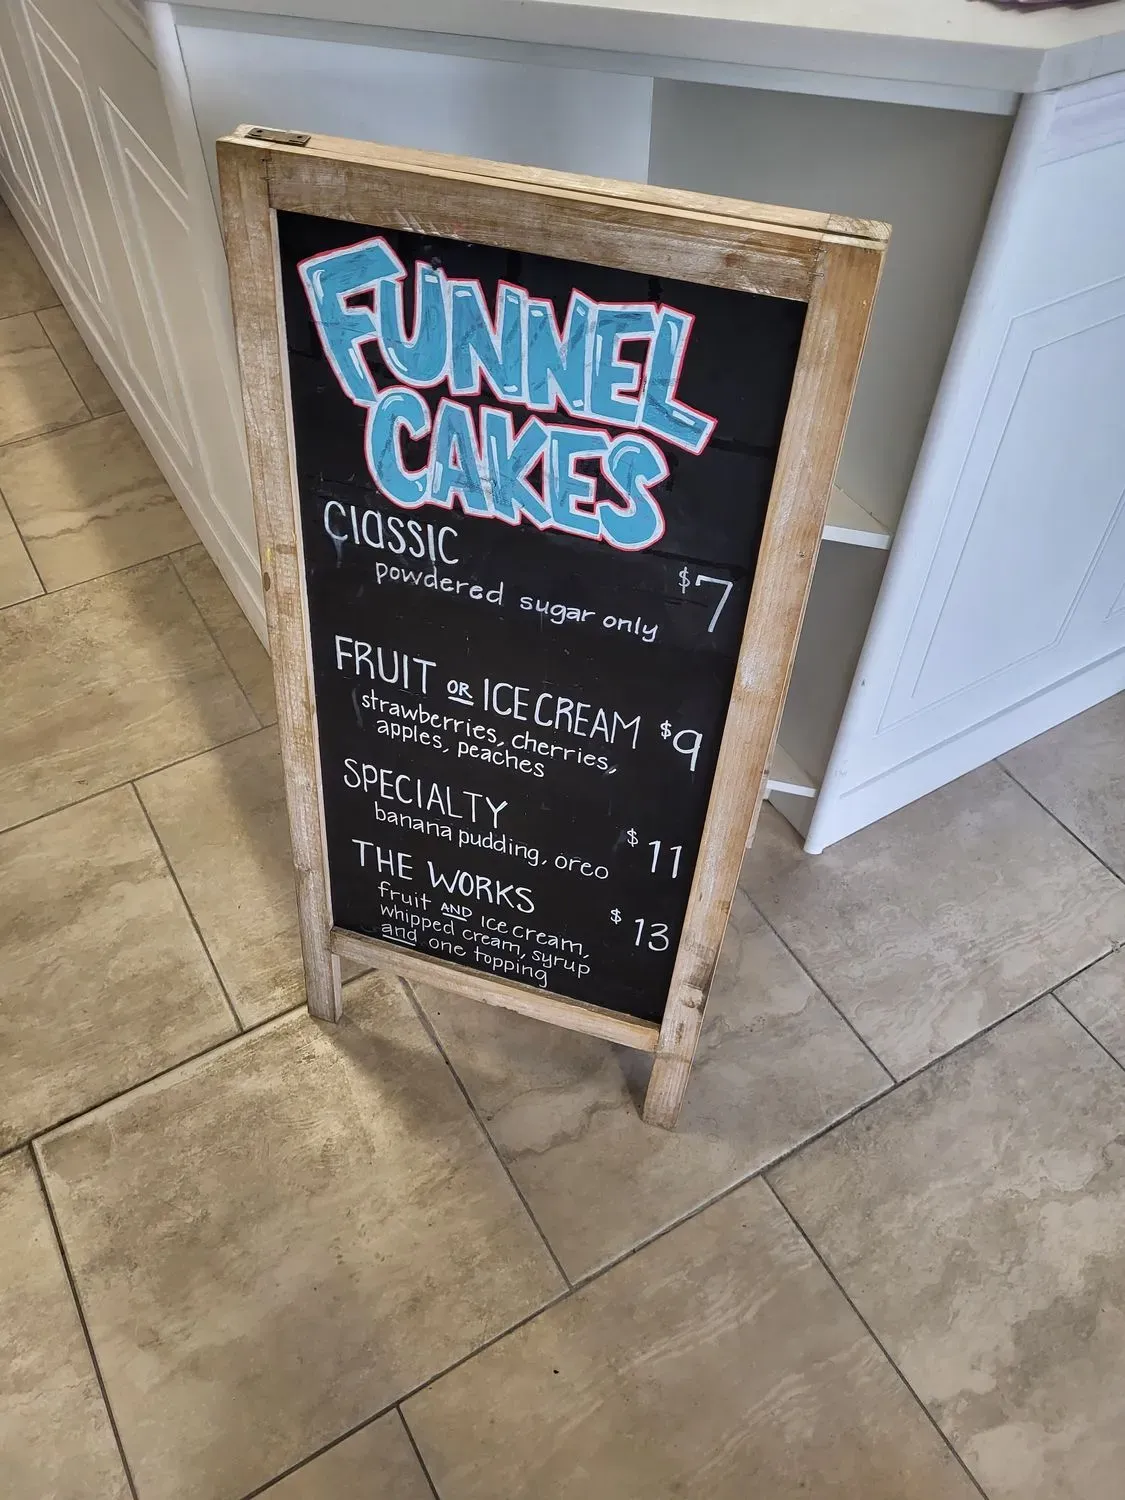 FUNNEL
CAKES
Classic
powdered sugar only $7
FRUIT OR ICE CREAM $9
strawberries, cherries,
apples, peaches
SPECIALTY
banana pudding, oreo $11
THE WORKS
fruit AND ice cream, $13
whipped cream, syrup
and one topping